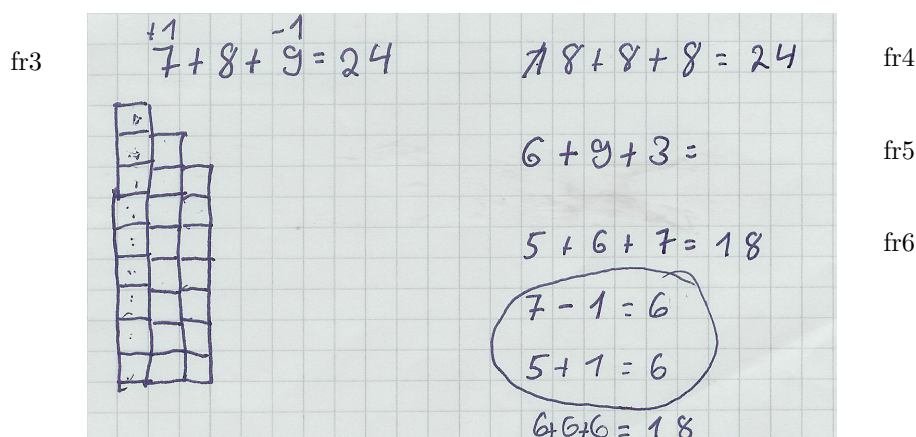 +1 -1
fr3 7+8+9=24
8+8+8=24 fr4
6+9+3= fr5
5+6+7=18 fr6
7-1=6
5+1=6
6+6+6=18